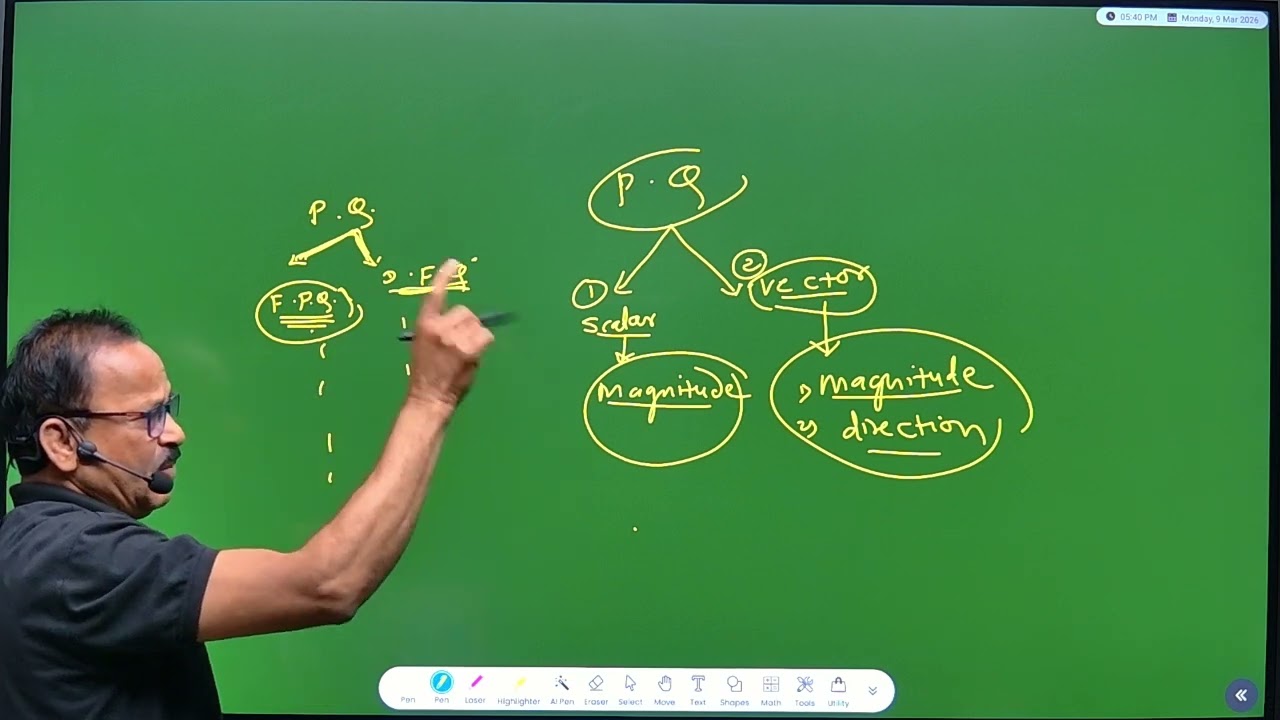 05:40 PM Monday, 9 Mar 2026
P . Q
P . Q.
① scalar
② vector
F . P. Q.
magnitude
1) magnitude
2) direction
Pen Pen Laser Highlighter AI Pen Eraser Select Move Text Shapes Math Tools Utility